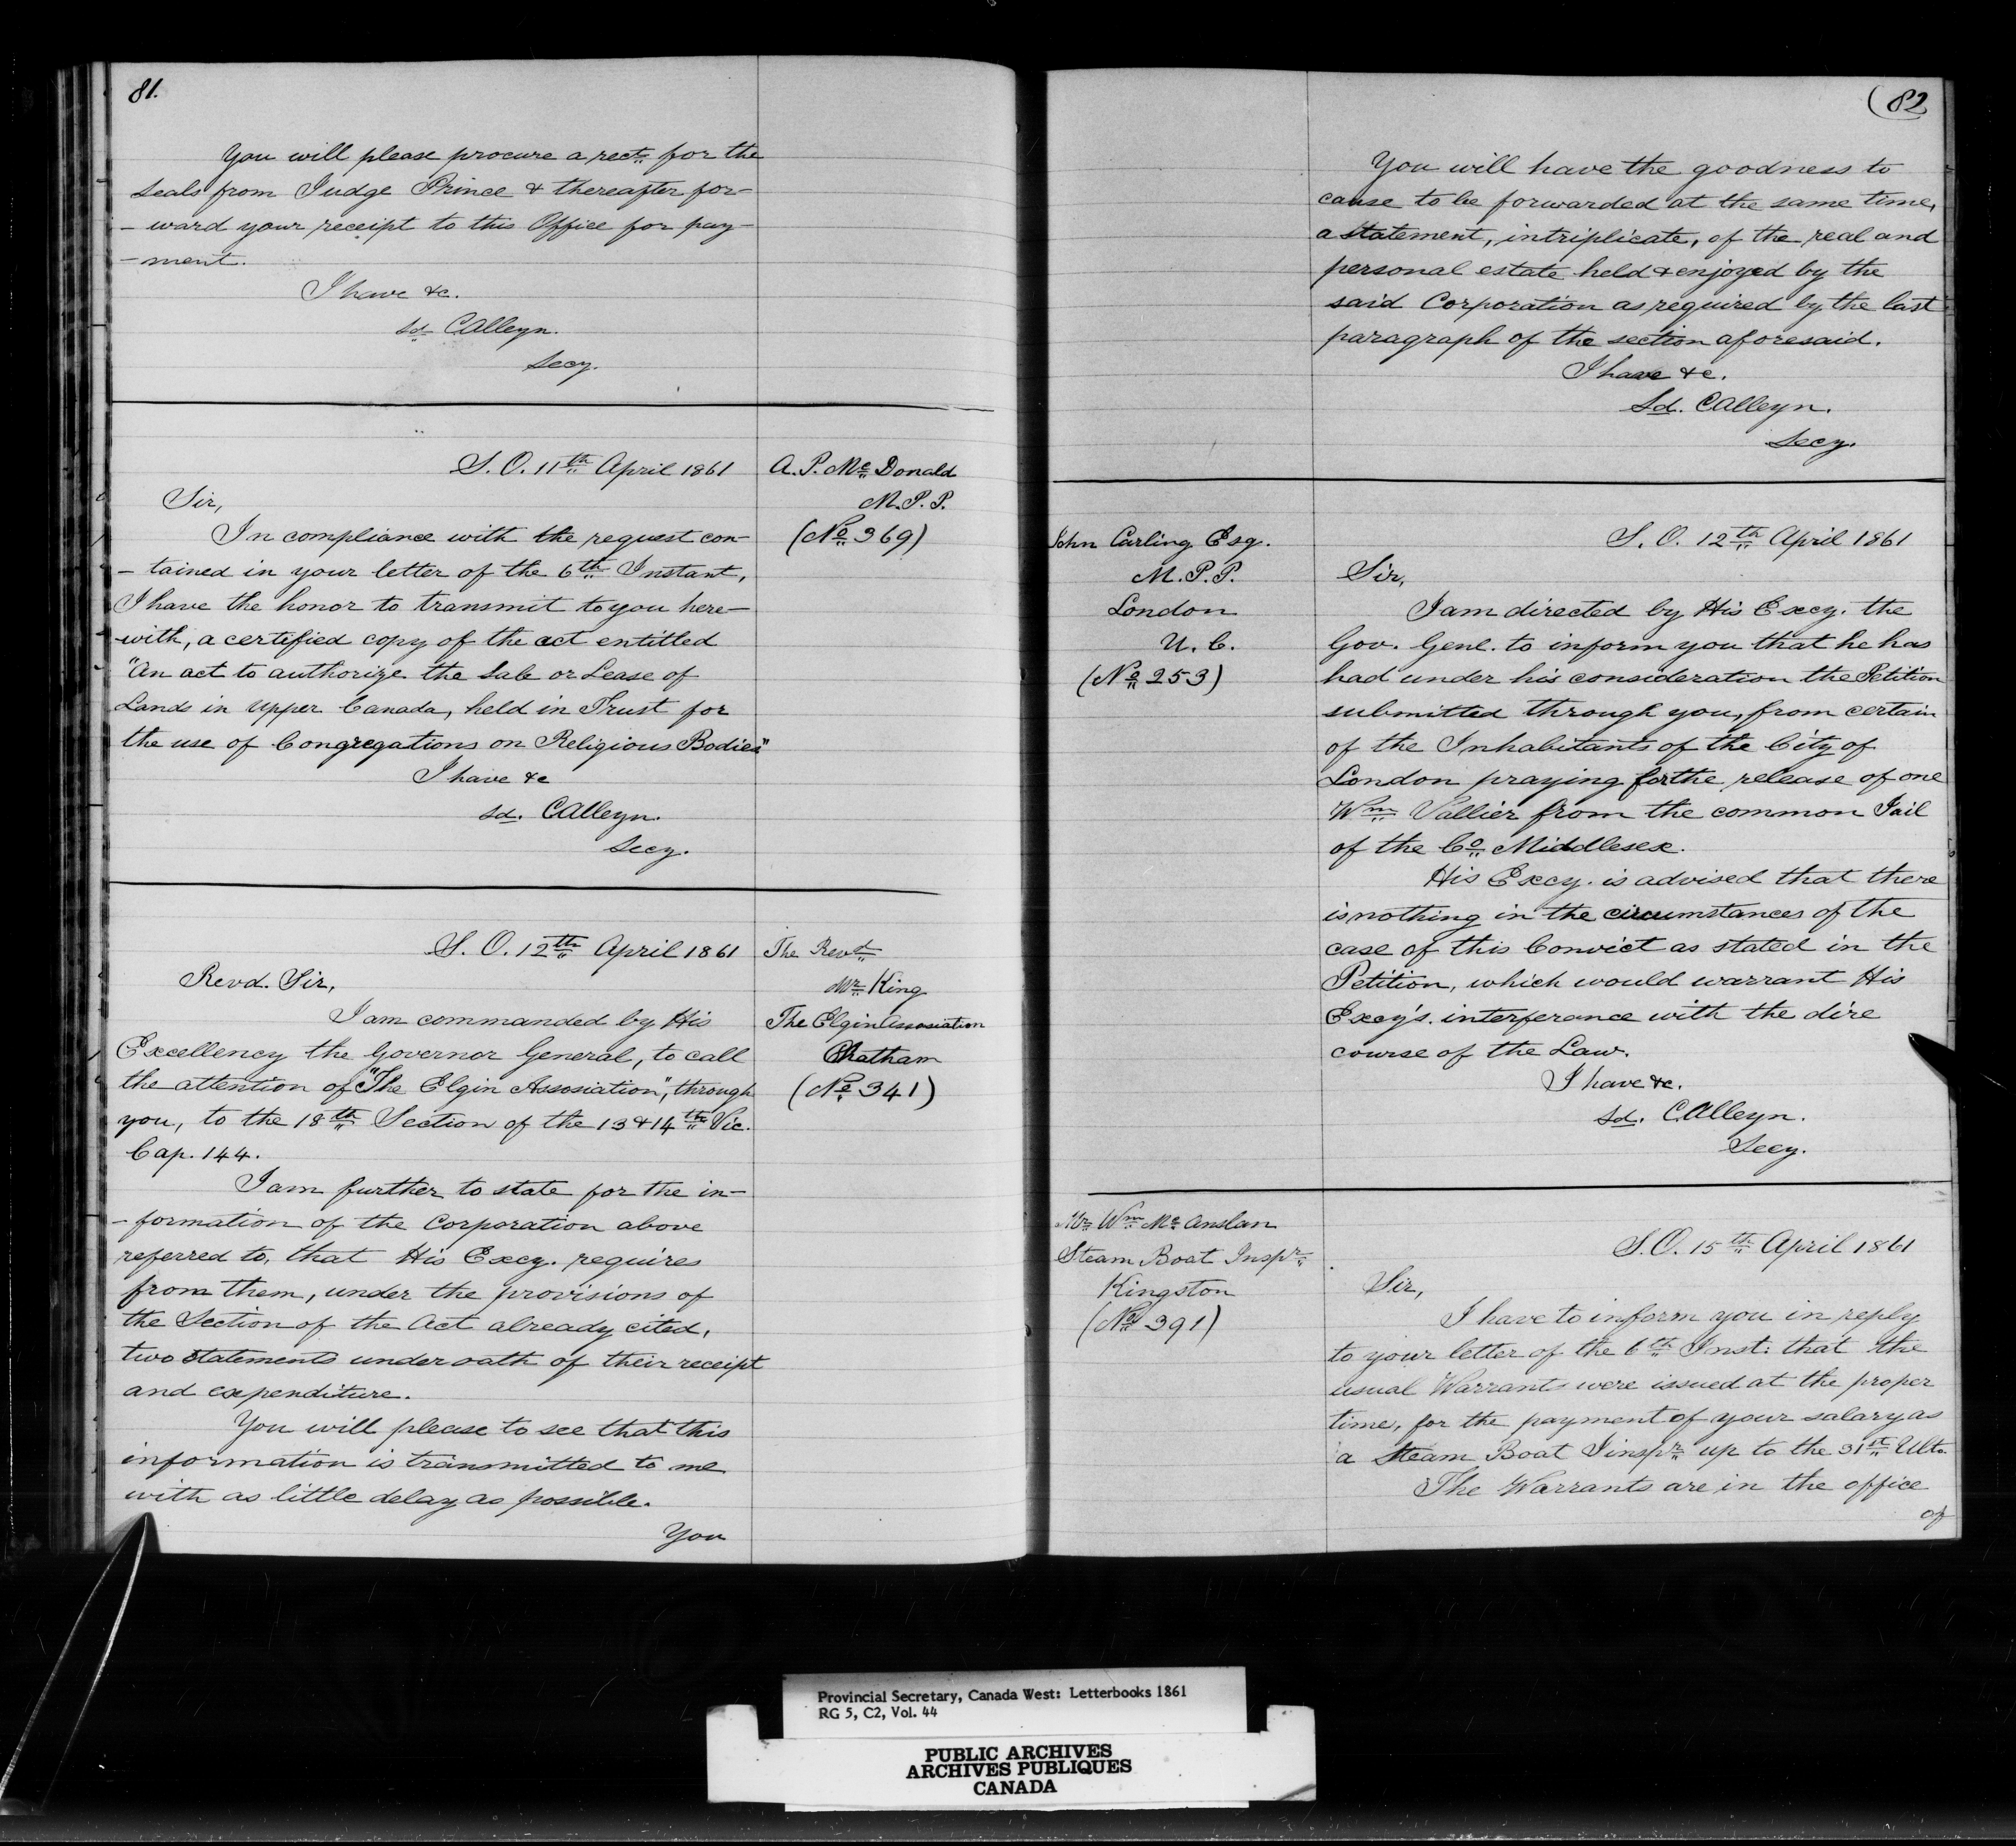 81.
You will please procure a rect. for the
seals from Judge Prince & thereafter for-
- ward your receipt to this Office for pay-
- ment.
I have &c.
sd. C Alleyn.
Secy.
S. O. 11th April 1861
A. P. Mc Donald
M. P. P.
(No 369)
Sir,
In compliance with the request con-
- tained in your letter of the 6th Instant,
I have the honor to transmit to you here-
- with, a certified copy of the act entitled
"An act to authorize the Sale or Lease of
Lands in Upper Canada, held in Trust for
the use of Congregations on Religious Bodies"
I have &c
sd. C Alleyn.
Secy.
S. O. 12th April 1861
The Revd
Mr King
The Elgin Assosiation
Chatham
(No 341)
Revd. Sir,
I am commanded by His
Excellency the Governor General, to call
the attention of "The Elgin Assosiation", through
you, to the 18th Section of the 13 & 14th Vic.
Cap. 144.
I am further to state for the in-
- formation of the Corporation above
referred to, that His Excy. requires
from them, under the provisions of
the Section of the Act already cited,
two statements under oath of their receipt
and expenditure.
You will please to see that this
information is transmitted to me
with as little delay as possible.
You
(82
You will have the goodness to
cause to be forwarded at the same time,
a statement, in triplicate, of the real and
personal estate held & enjoyed by the
said Corporation as required by the last
paragraph of the section aforesaid.
I have &c.
Sd. C Alleyn.
Secy.
John Carling Esq.
M. P. P.
London
U. C.
(No 253)
S. O. 12th April 1861
Sir,
I am directed by His Excy. the
Gov. Genl. to inform you that he has
had under his consideration the Petition
submitted through you, from certain
of the Inhabitants of the City of
London praying for the release of one
Wm Vallier from the common Jail
of the Co Middlesex.
His Excy. is advised that there
is nothing in the circumstances of the
case of this Convict as stated in the
Petition, which would warrant His
Excy's. interferance with the dire
course of the Law.
I have &c.
sd. C. Alleyn.
Secy.
Mr Wm Mc Anslan
Steam Boat Inspr
Kingston
(No 391)
S. O. 15th April 1861
Sir,
I have to inform you in reply
to your letter of the 6th Inst: that the
usual Warrants were issued at the proper
time, for the payment of your salary as
a Steam Boat Iinspr up to the 31st Ulto.
The Warrants are in the office
of
Provincial Secretary, Canada West: Letterbooks 1861
RG 5, C2, Vol. 44
PUBLIC ARCHIVES
ARCHIVES PUBLIQUES
CANADA